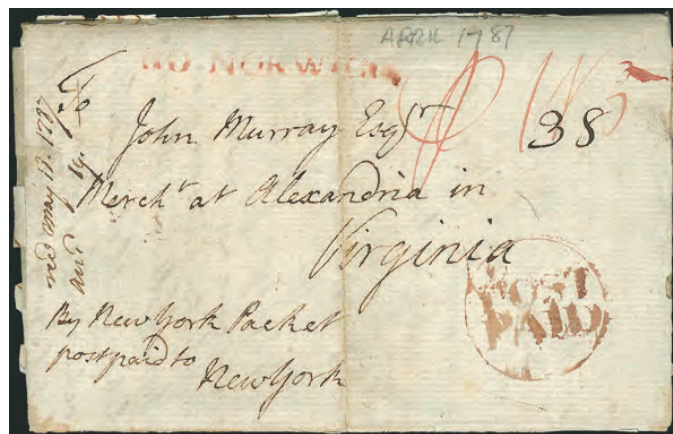 APRIL 1787
110 NORWICH
To
John Murray Esqr
38
Mercht at Alexandria in
Virginia
POST
PAID
By New York Packet
postpaid to
New York
recd may 18. 1787
and